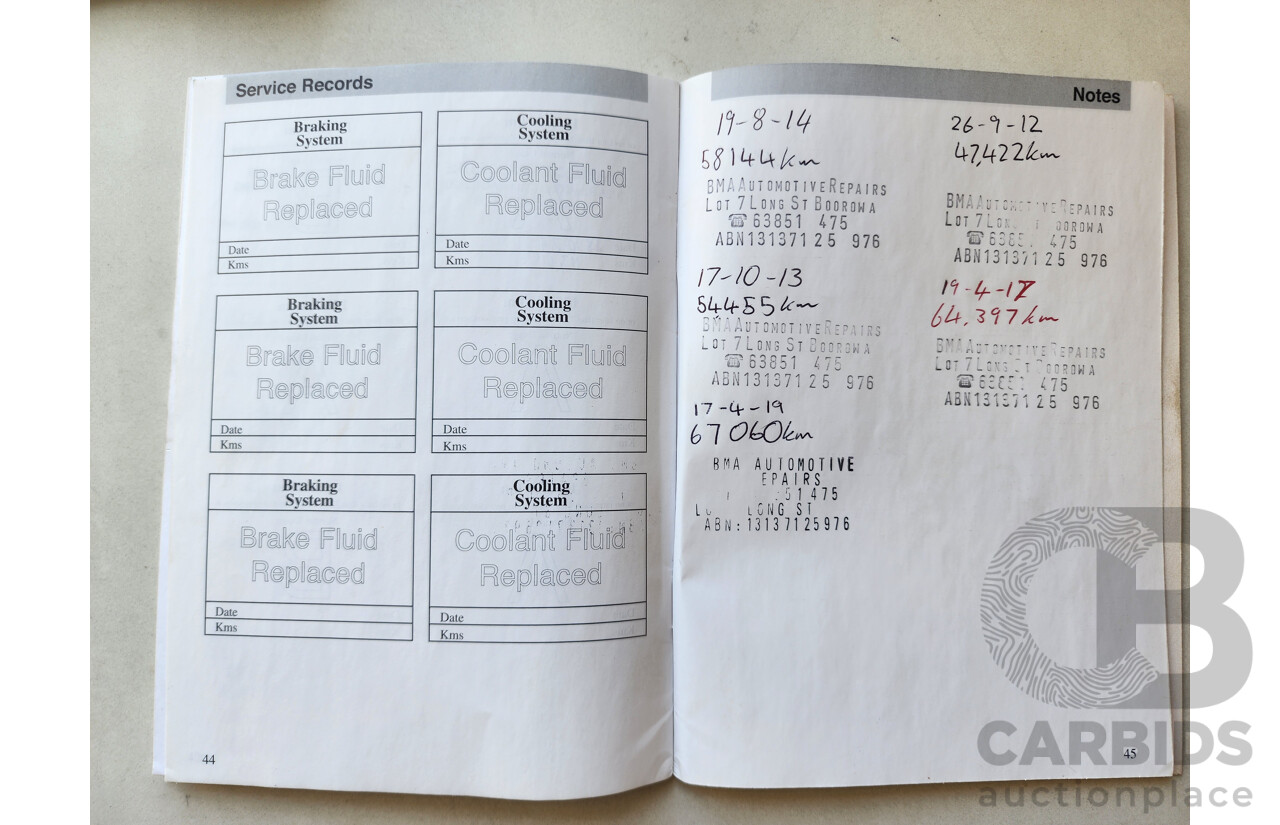 Service Records
Braking
System
Brake Fluid
Replaced
Date
Kms
Cooling
System
Coolant Fluid
Replaced
Date
Kms
Braking
System
Brake Fluid
Replaced
Date
Kms
Cooling
System
Coolant Fluid
Replaced
Date
Kms
Braking
System
Brake Fluid
Replaced
Date
Kms
Cooling
System
Coolant Fluid
Replaced
Date
Kms
44
Notes
19-8-14
58144km
BMA AUTOMOTIVE REPAIRS
LOT 7 LONG ST BOOROWA
☎ 63851 475
ABN 131371 25 976
17-10-13
54455km
BMA AUTOMOTIVE REPAIRS
LOT 7 LONG ST BOOROWA
☎ 63851 475
ABN 131371 25 976
17-4-19
67060km
BMA AUTOMOTIVE
EPAIRS
51 475
LONG ST
ABN: 13137125976
26-9-12
47,422km
BMA AUTOMOTIVE REPAIRS
LOT 7 LONG
☎ 475
ABN 131371 25 976
19-4-17
64,397km
BMA AUTOMOTIVE REPAIRS
LOT 7 LONG ST BOOROWA
☎ 475
ABN 131371 25 976
45
CB
CARBIDS
auctionplace